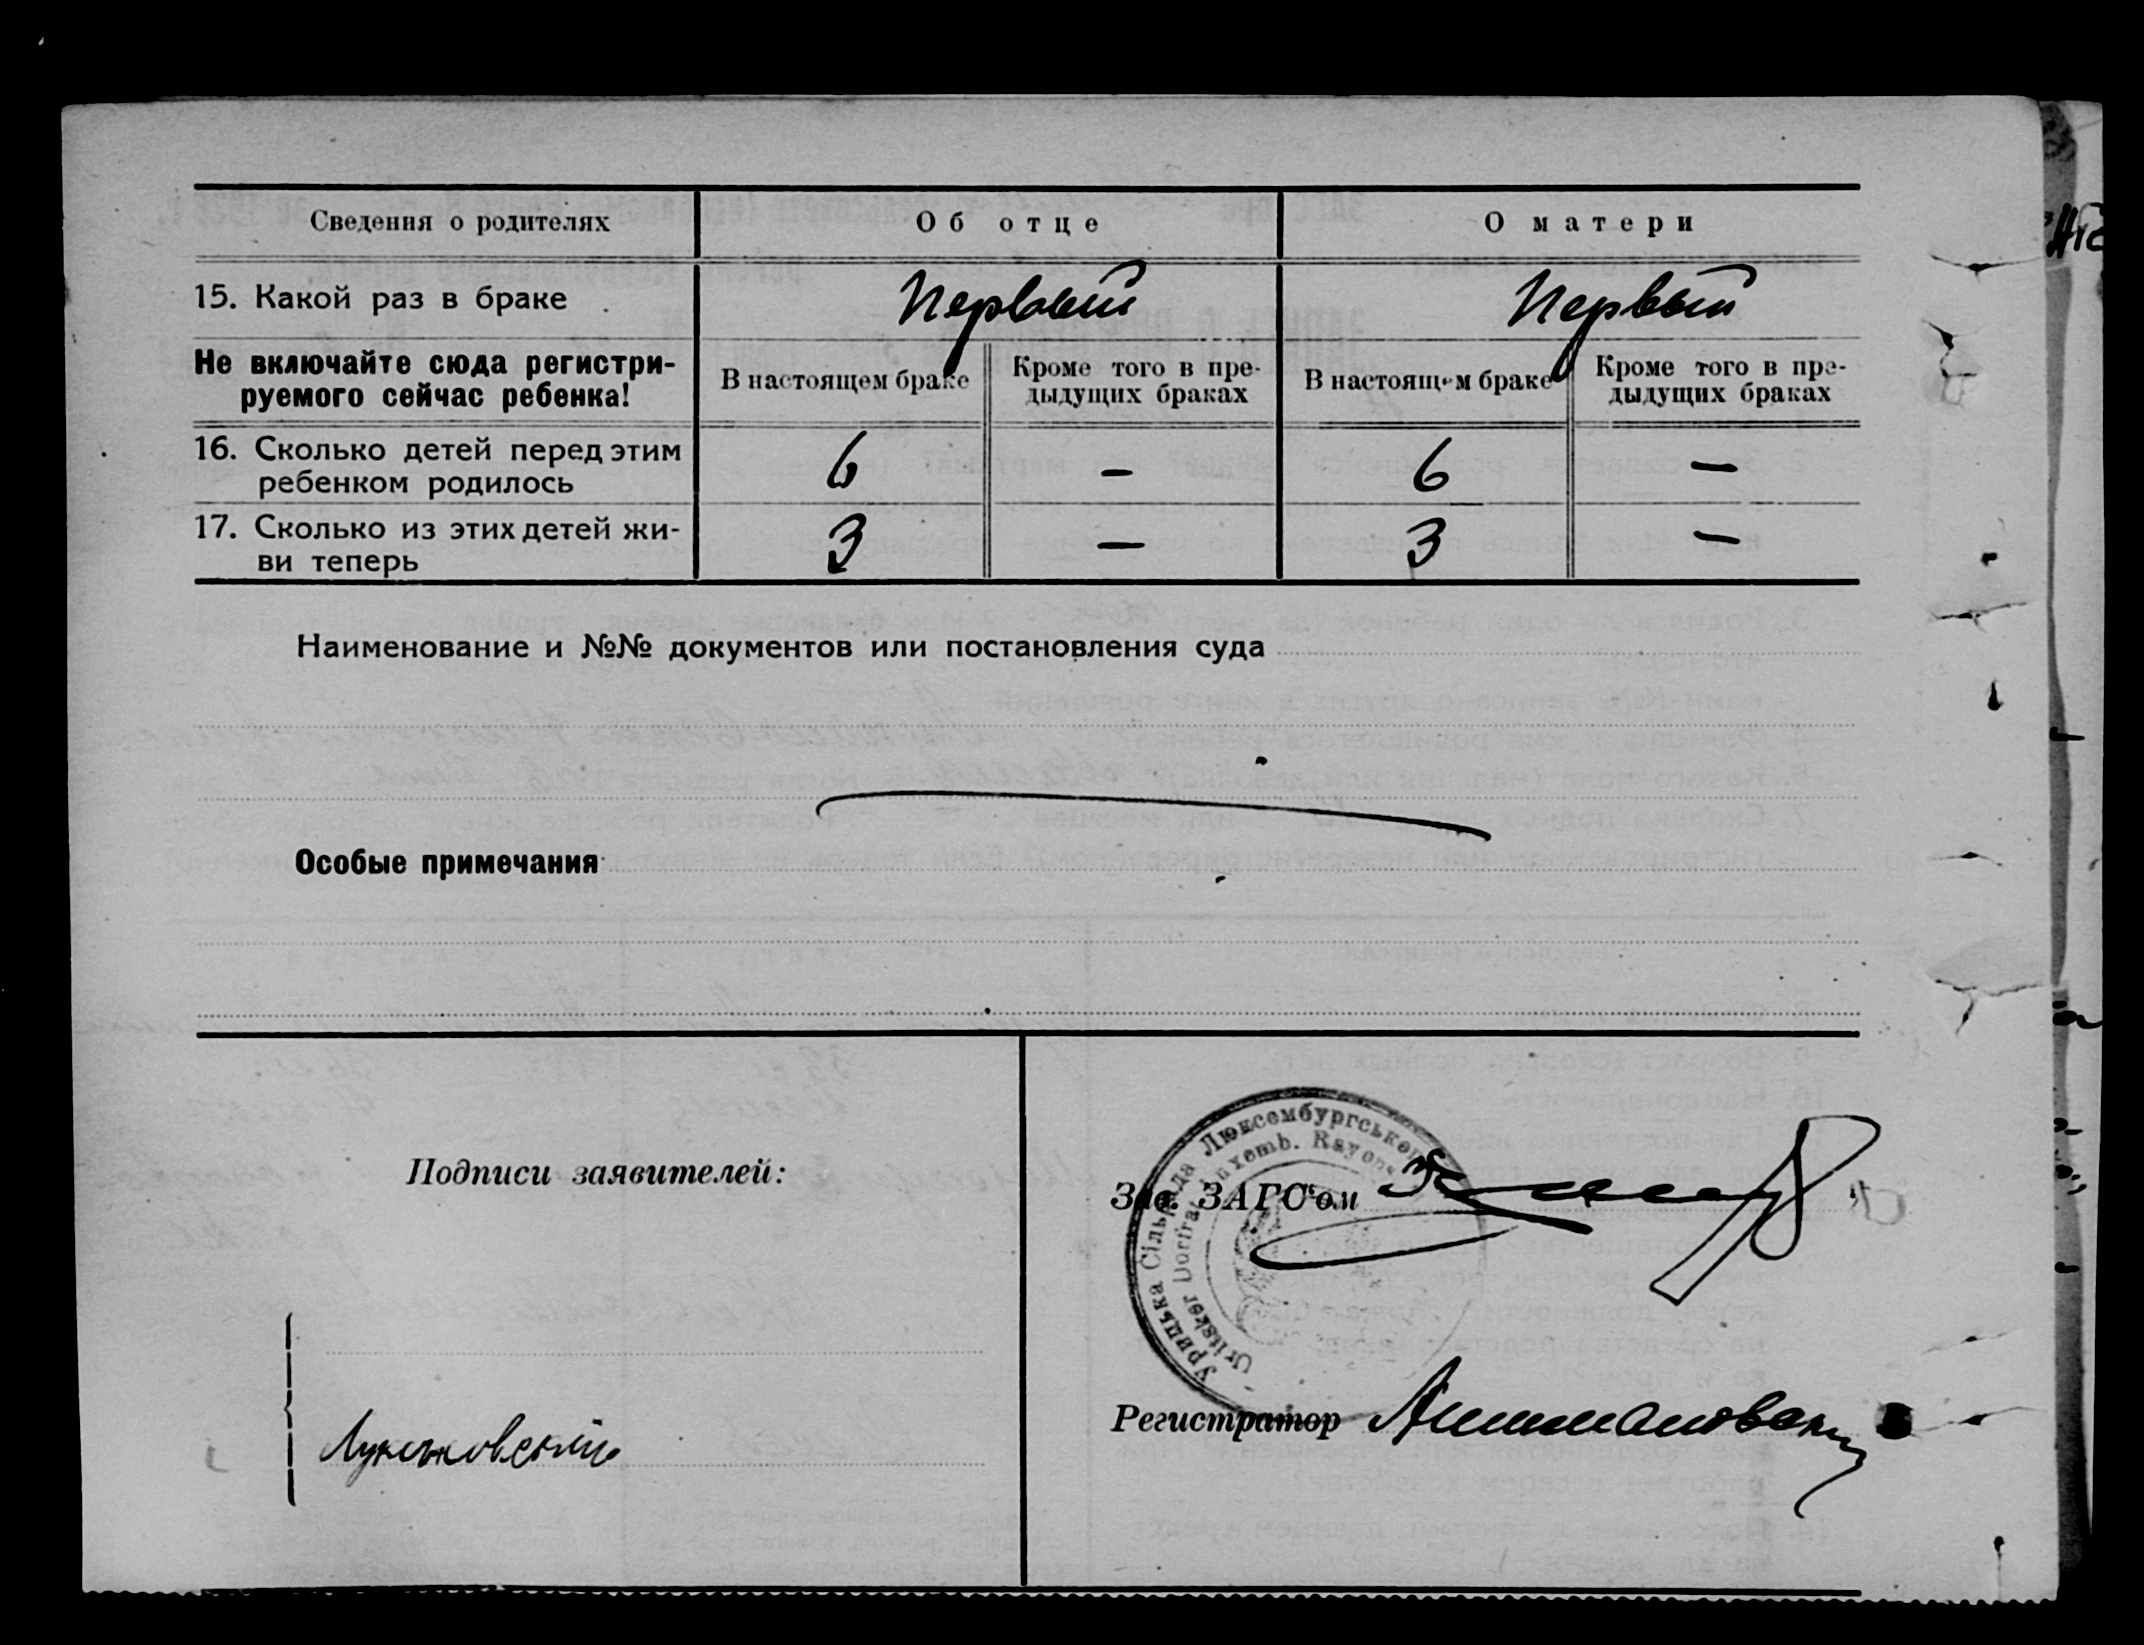 Сведения о родителях
Об отце
О матери
15. Какой раз в браке
Первый
Первый
Не включайте сюда регистри-
руемого сейчас ребенка!
В настоящем браке
Кроме того в пре-
дыдущих браках
В настоящем браке
Кроме того в пре-
дыдущих браках
16. Сколько детей перед этим
ребенком родилось
6
—
6
—
17. Сколько из этих детей жи-
ви теперь
3
—
3
—
Наименование и №№ документов или постановления суда
Особые примечания
Подписи заявителей:
Зав. ЗАГС'ом
Урицька Сільрада Люксембургського
Uritsker Dorfrat Luxemb. Rayons
Регистратор